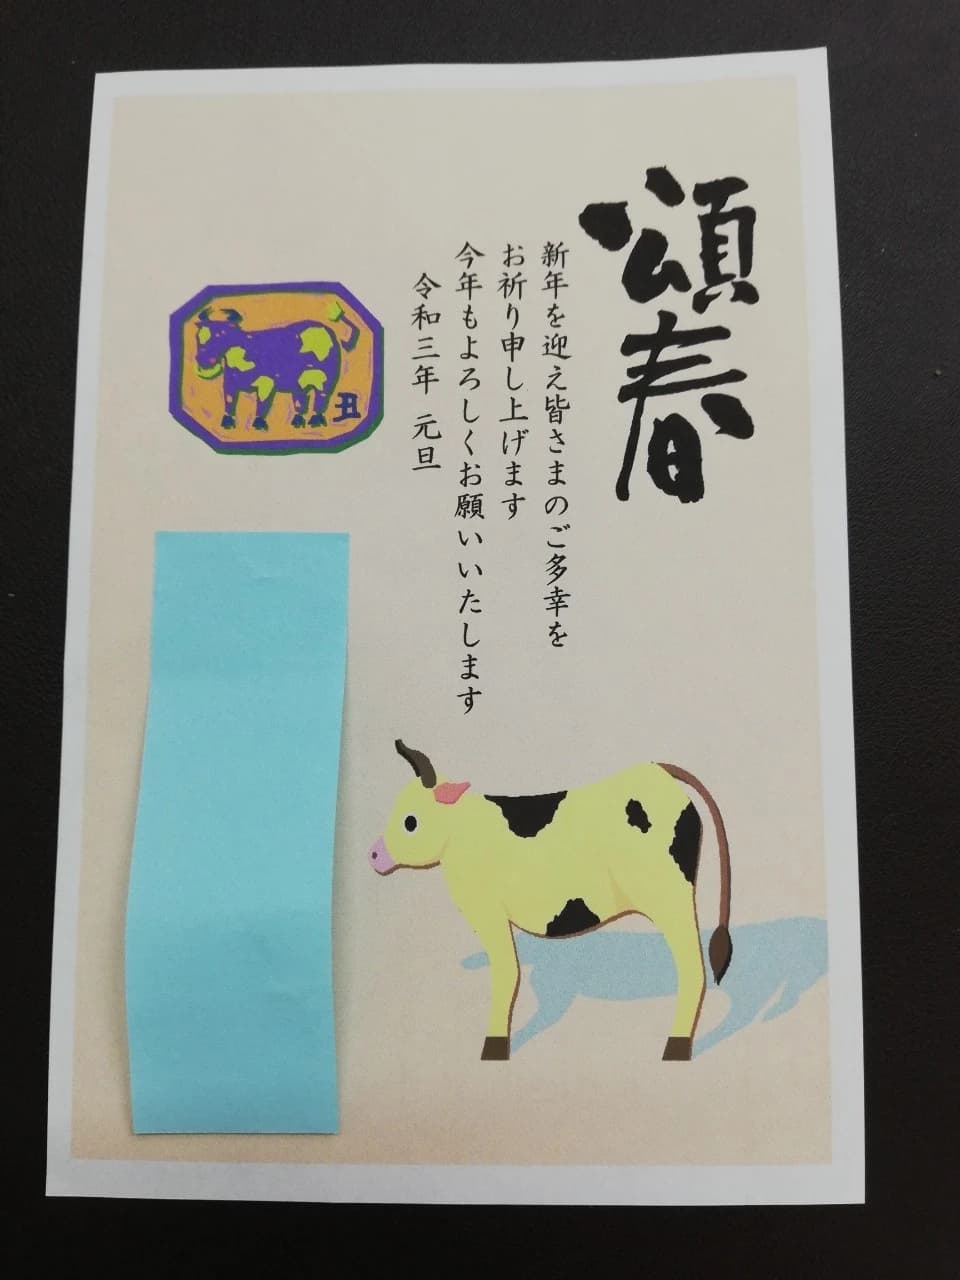 頌春
新年を迎え皆さまのご多幸を
お祈り申し上げます
今年もよろしくお願いいたします
令和三年 元旦
丑